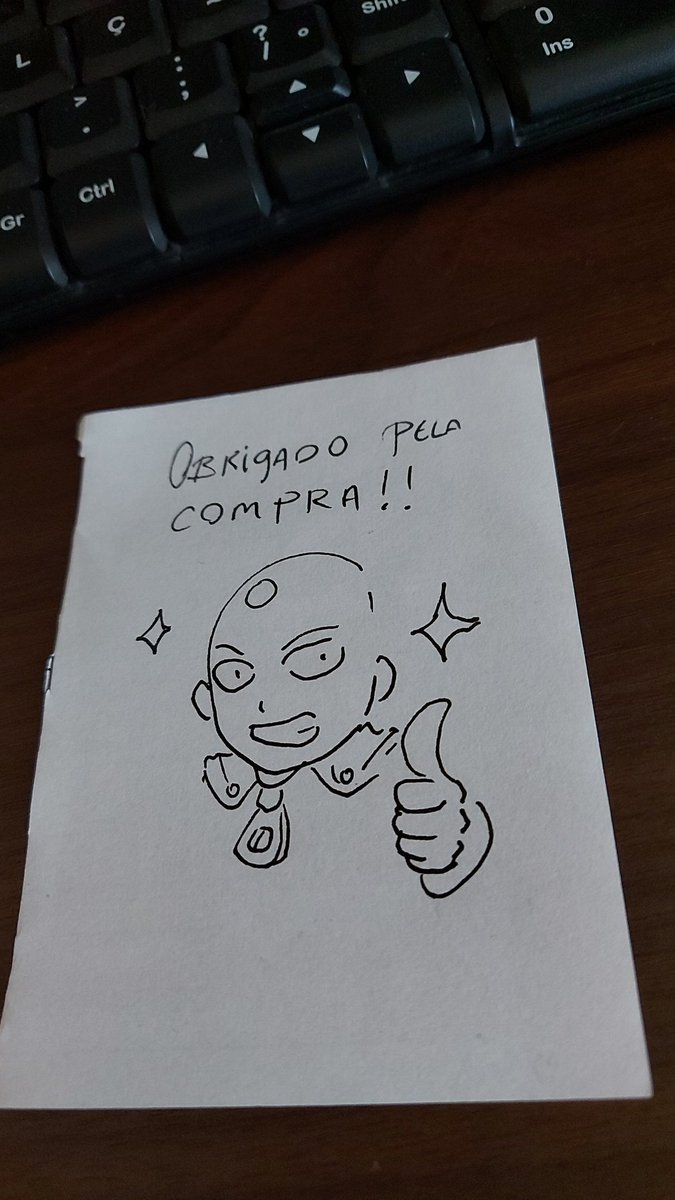 L Ç Shift 0 Ins
? / °
: ;
> .
Gr Ctrl
OBRIGADO PELA
COMPRA!!